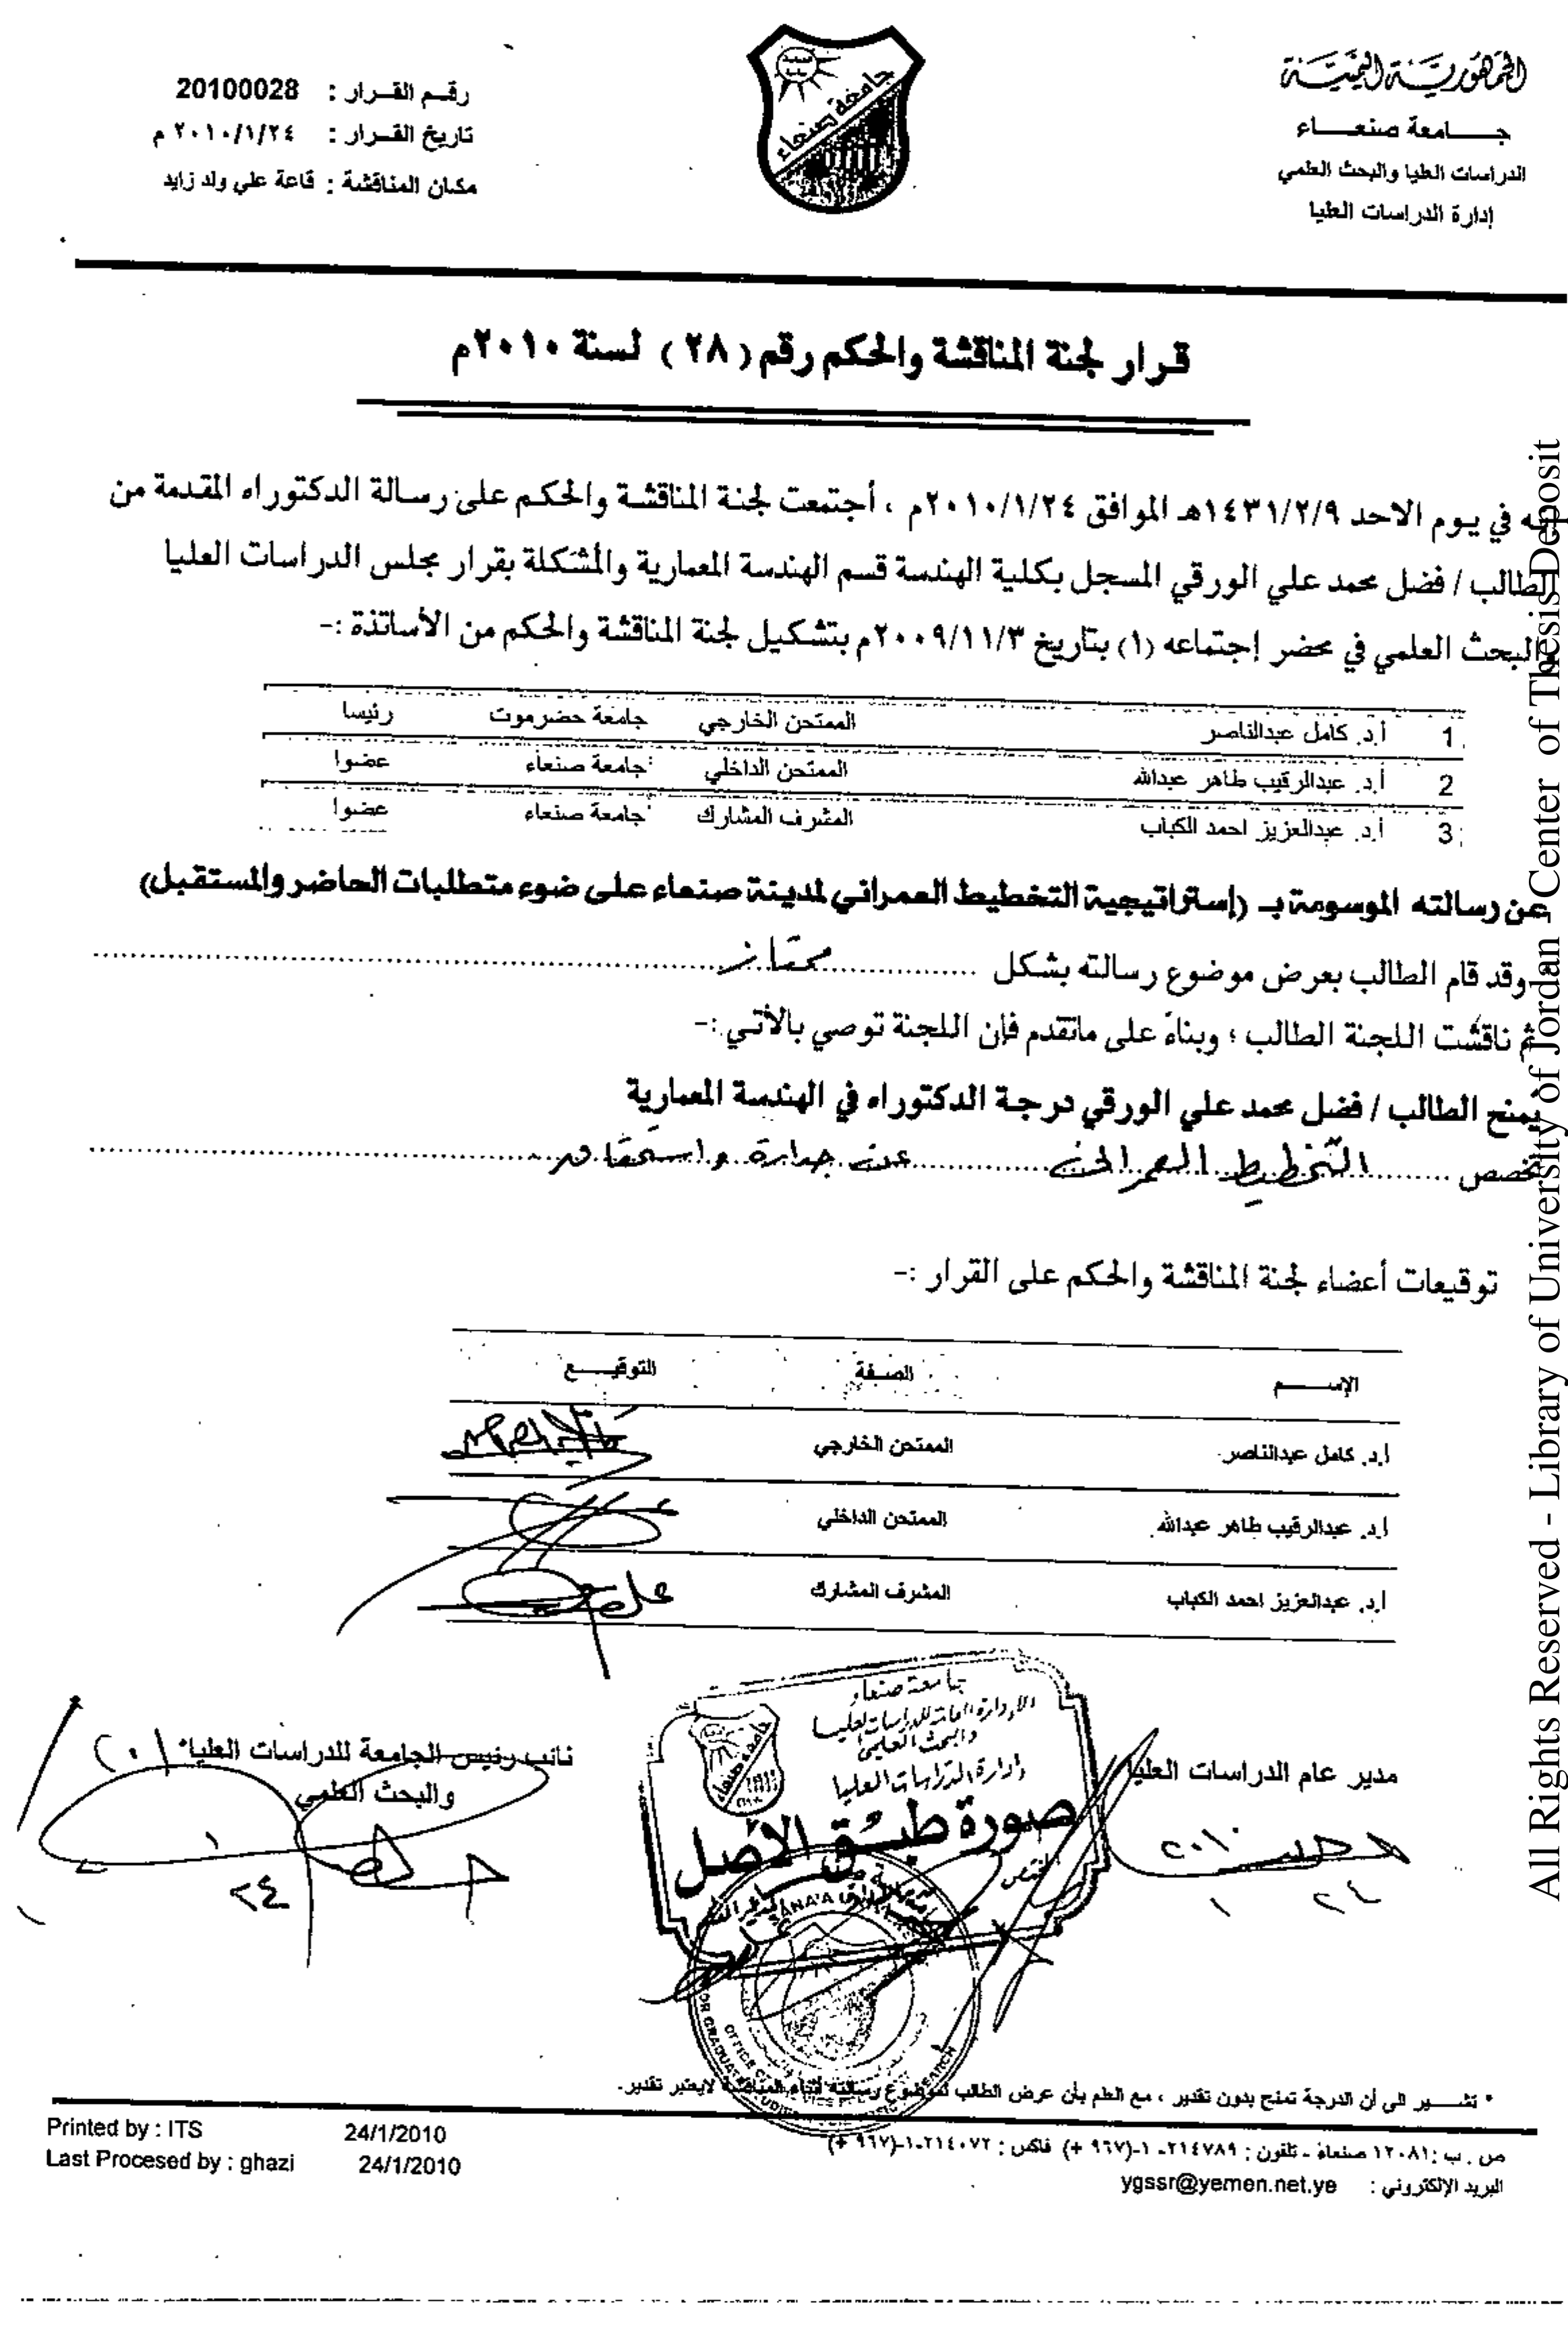 الجمهورية اليمنية
جـــامعة صنعـــاء
الدراسات العليا والبحث العلمي
إدارة الدراسات العليا
جامعة صنعاء
رقـم القـرار : 20100028
تاريخ القـرار : ٢٠١٠/١/٢٤ م
مكان المناقشة : قاعة علي ولد زايد
قـرار لجنة المناقشة والحكم رقم ( ٢٨ ) لسنة ٢٠١٠م
إنه في يـوم الاحد ١٤٣١/٢/٩هـ الموافق ٢٠١٠/١/٢٤م ، أجتمعت لجنة المناقشة والحكم على رسالة الدكتوراه المقدمة من
الطالب / فضل محمد علي الورقي المسجل بكلية الهندسة قسم الهندسة المعمارية والمُشكلة بقرار مجلس الدراسات العليا
والبحث العلمي في محضر إجتماعه (١) بتاريخ ٢٠٠٩/١١/٣م بتشكيل لجنة المناقشة والحكم من الأساتذة :-
1 أ.د. كامل عبدالناصر الممتحن الخارجي جامعة حضرموت رئيسا
2 أ.د. عبدالرقيب طاهر عبدالله الممتحن الداخلي جامعة صنعاء عضوا
3 أ.د. عبدالعزيز احمد الكباب المشرف المشارك جامعة صنعاء عضوا
عن رسالته الموسومة بـ (إستراتيجية التخطيط العمراني لمدينة صنعاء على ضوء متطلبات الحاضر والمستقبل)
وقد قام الطالب بعرض موضوع رسالته بشكل ممتاز
ثم ناقشت اللجنة الطالب ؛ وبناءً على ماتقدم فإن اللجنة توصي بالآتي :-
يمنح الطالب / فضل محمد علي الورقي درجة الدكتوراه في الهندسة المعمارية
تخصص التخطيط العمراني عن جدارة واستحقاق
توقيعات أعضاء لجنة المناقشة والحكم على القرار :-
الإســـم الصـفة التوقيـــع
أ.د. كامل عبدالناصر الممتحن الخارجي
أ.د. عبدالرقيب طاهر عبدالله الممتحن الداخلي
أ.د. عبدالعزيز احمد الكباب المشرف المشارك
مدير عام الدراسات العليا
نائب رئيس الجامعة للدراسات العليا
والبحث العلمي
جامعة صنعاء
الإدارة العامة للدراسات العليا
والبحث العلمي
إدارة الدراسات العليا
صورة طبق الاصل
* تشـــير الى أن الدرجة تمنح بدون تقدير ، مع العلم بأن عرض الطالب لموضوع رسالته أثناء المناقشة لايعتبر تقدير.
ص . ب :١٢٠٨١ صنعاء - تلفون : ٢١٤٧٨٩-١-(٩٦٧ +) فاكس : ٢١٤٠٧٢-١-(٩٦٧ +)
البريد الإلكتروني : ygssr@yemen.net.ye
Printed by : ITS 24/1/2010
Last Procesed by : ghazi 24/1/2010
All Rights Reserved - Library of University of Jordan - Center of Thesis Deposit